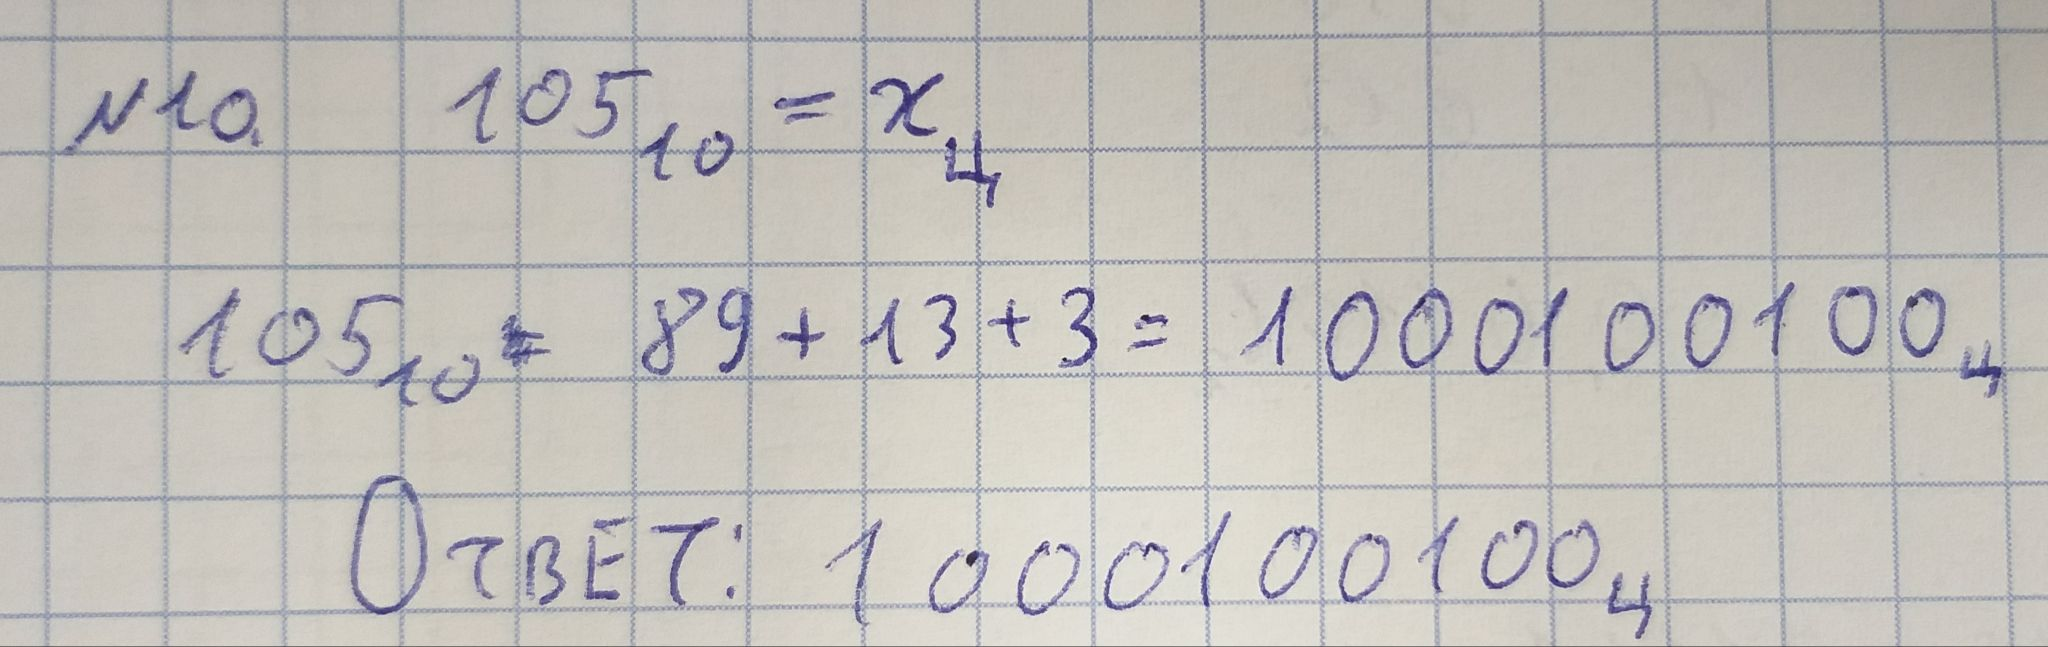 №10. 105₁₀ = x_ц
105₁₀ = 89 + 13 + 3 = 1000100100_ц
Ответ: 1000100100_ц